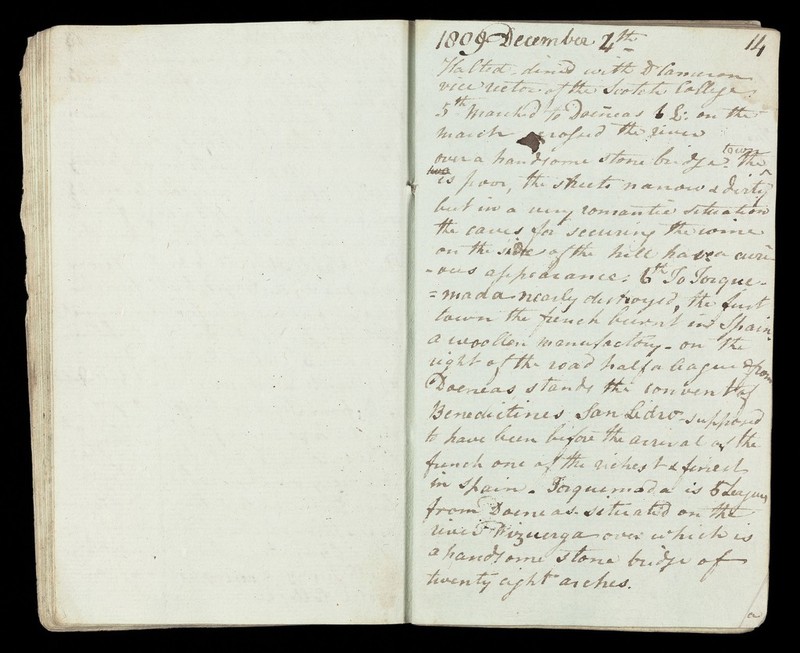 1809 December 4th 14
Halted - dined with Dr Cameron
vice rector of the Scotch College.
5th Marched to Doeneas 6 L: on the
march crossed the river
over a handsome stone bridge. The town
is poor, the streets narrow & dirty
but in a very romantic situation
the caves for securing the wine
on the side of the hill have a curi-
-ous appearance: 6th To Torque-
=mada nearly destroyed, the first
town the french burnt in Spain.
a woollen manufactory - on the
right of the road half a league from
Doeneas stands the convent of
Benedictines San Isidro - supposed
to have been before the arrival of the
french one of the richest & finest
in Spain - Torquemada is 6 Leagues
from Doeneas situated on the
river Pizuerga over which is
a handsome stone bridge of
twenty eight arches.
a